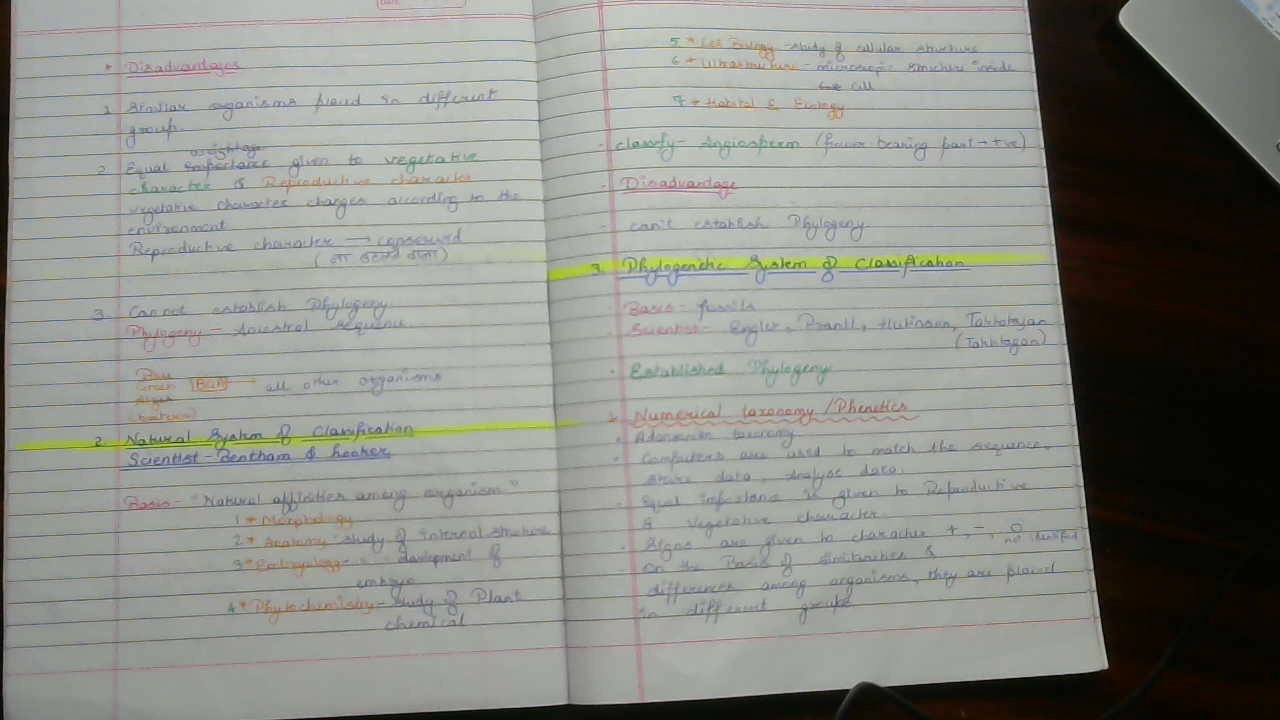 * Disadvantages
1. Similar organisms placed in different
group.
weightage
2. Equal importance given to vegetative
character & Reproductive character
vegetative character changes according to the
environment
Reproductive character → conserved
3. Cannot establish Phylogeny
Phylogeny - Ancestral sequence.
→ all other organisms
Algae
(bacteria)
2. Natural System of Classification
Scientist - Bentham & hooker
Basis - "Natural affinities among organism"
1 * Morphology
2 * Anatomy - study of internal structure
3 * Embryology - " development of
embryo
4 * Phytochemistry - study of Plant
chemical
5 * Cell Biology - study of cellular structure
6 * Ultrastructure - microscopic structure inside
the cell
7 * Habitat & Ecology
- classify - Angiosperm (flower bearing part → +ve)
- Disadvantage
- can't establish Phylogeny
3. Phylogenetic System of Classification
Basis - fussils
- Scientist - Engler, Prantl, Hutinson, Takhtajan
(Takhtagan)
• Established Phylogeny
* Numerical taxonomy / Phenetics
• Adansonian taxonomy
• Computers are used to match the sequence,
store data, Analyse data.
- Equal importance is given to Reproductive
& vegetative character.
- Signs are given to character +, -, 0
- On the Basis of similarities &
differences among organisms, they are placed
in different groups